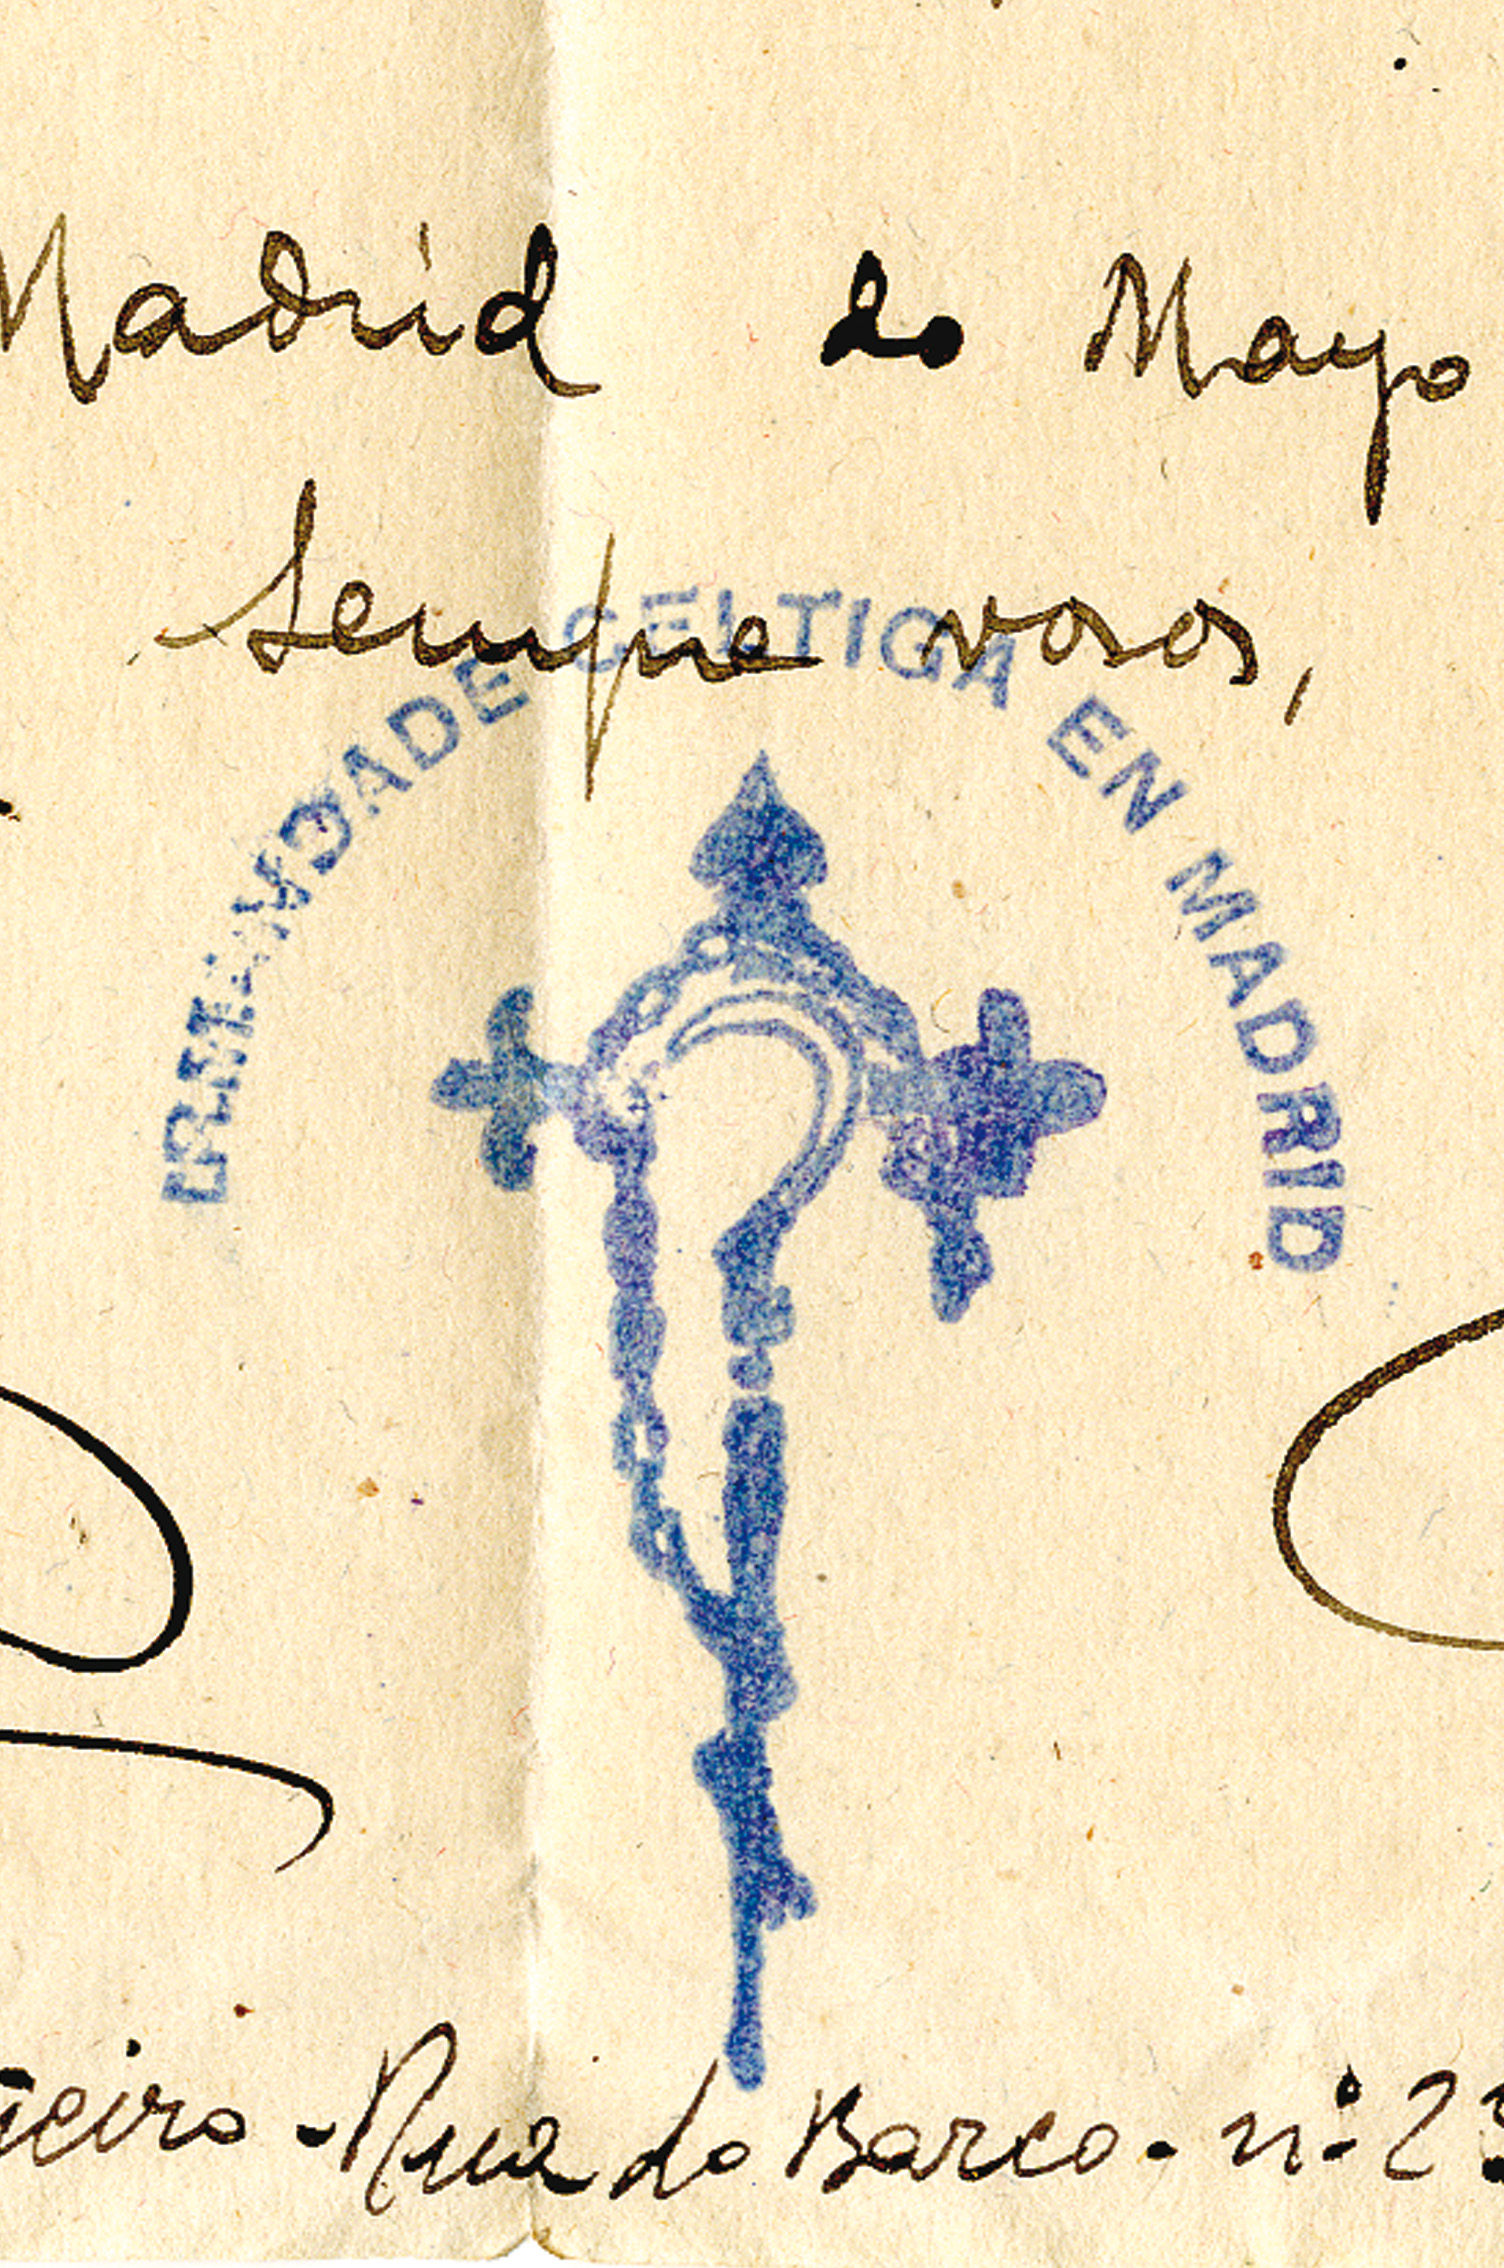 Madrid do Mayo
Sempre vosos,
IRMANDADE CELTIGA EN MADRID
ñeiro - Rua do Barco - nº 23